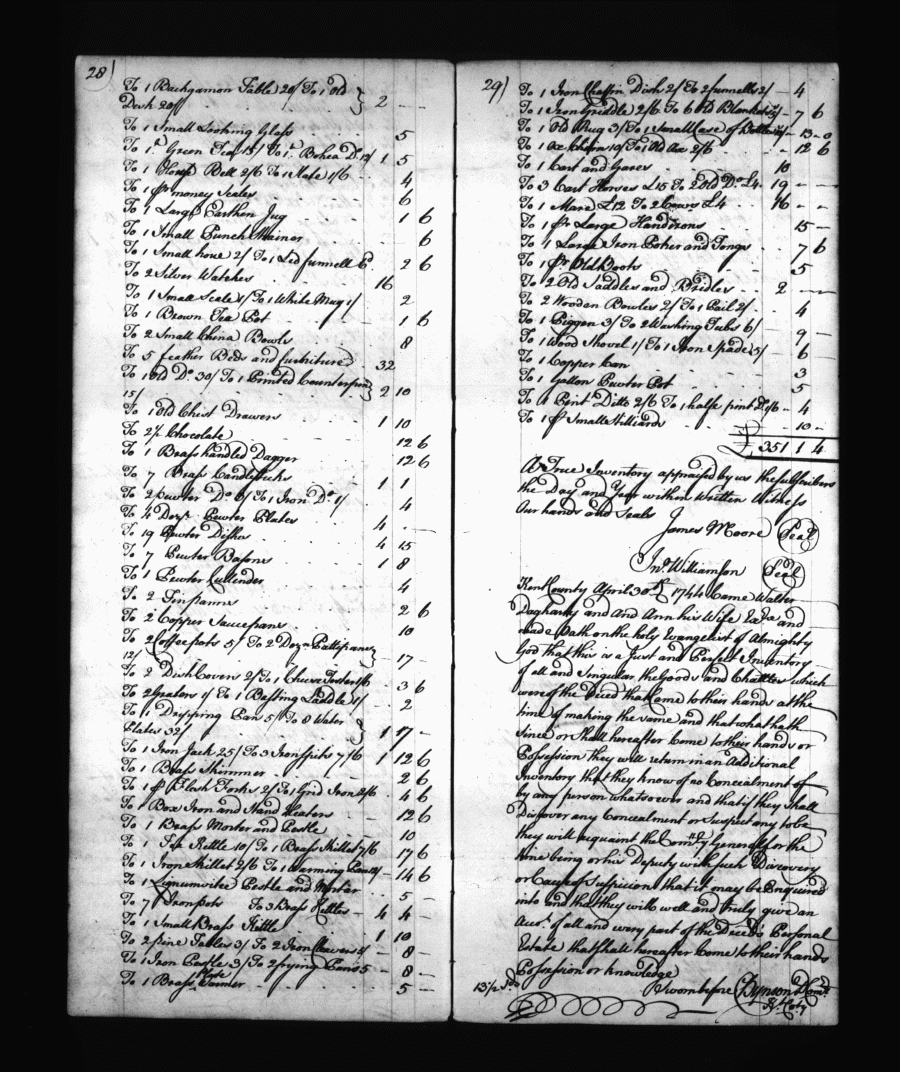 28)
To 1 Backgamon Table 20/ To 1 Old
Desk 20/ } 2 - -
To 1 Small Looking Glass 5
To 1 lb Green Tea 13/ To 1 lb Bohea Do 12/ 1 5
To 1 Bell 2/6 To 1 Slate 1/6 4
To 1 pr money Scales 6
To 1 Large Earthen Jug 1 6
To 1 Small Punch Strainer 6
To 1 Small hone 2/ To 1 Led funnell 6d 2 6
To 2 Silver Watches 16
To 1 Small Scale 1/ To 1 White Mug 1/ 2
To 1 Brown Tea Pot 1 6
To 2 Small China Bowls 8
To 5 feather Beds and furniture 32
To 1 Old Do 30/ To 1 Printed Counterpin
15/ } 2 10
To 1 old Chist Drawers 1 10
To 2 Chocolate 12 6
To 1 Brass handled Dagger 12 6
To 7 Brass Candlesticks 1 1
To 2 pewter Do To 1 Iron Do 1/ 4
To 4 Dozn Pewter Plates 4 -
To 19 Pewter Dishes 4 15
To 7 Pewter Basons 1 8
To 1 Pewter Cullender 4
To 2 Tin panns 2 6
To 2 Copper Saucepans 10
To 2 Coffeepots 5/ To 2 Dozn Pattipans
12/ } - 17 -
To 2 Dish Covers 2/ To 1 Cheese Toster 1/6 - 3 6
To 2 Graters 1/ To 1 Basting Laddle 1/ - 2
To 1 Dripping Pan 5/ To 8 Water
Plates 32/ } 1 17 -
To 1 Iron Jack 25/ To 3 Iron spits 7/6 1 12 6
To 1 Brass Skimmer 2 6
To 1 Flesh Fork 2/ To 1 Grid Iron 2/6 4 6
To 1 Box Iron and Stand Heaters 12 6
To 1 Brass Morter and Pestle 10
To 1 Tea Kettle 10/ To 1 Brass Skillet 7/6 17 6
To 1 Iron Skillet 2/6 To 1 Warming Pan 12/ - 14 6
To 1 Lignumvitee Pestle and Morter 5 -
To 7 Iron pots To 3 Brass Kettles - 4 4 -
To 1 Small Brass Kettle 1 10
To 2 pine Tables 3/ To 2 Iron Cleavers 5/ - 8 -
To 1 Iron Pestle 3/ To 2 frying Pans 5 - 8 -
To 1 Brass Plate 5 -
29)
To 1 Iron Chaffin Dish 2/ To 2 funnells 2/ - 4
To 1 Iron Griddle 2/6 To 6 Old Blankets 5/ - 7 6
To 1 Old Rug 3/ To 1 Small Case of Bottles - 13 - 0
To 1 Ox Chain 10/ To 1 Old Axe 2/6 - 12 6
To 1 Cart and Geares 10
To 3 Cart Horses £15 To 2 Old Do £4 19 - -
To 1 Mare £12 To 2 Cows £4 16 - -
To 1 pr Large Handirons 15 -
To 1 Large Iron Poker and Tongs 7 6
To 1 pr Old Boots 5
To 2 Old Saddles and Bridles 2 - -
To 2 Wooden Bowles 2/ To 1 Pail 2/ 4
To 1 Piggen 3/ To 2 Washing Tubs 6/ 9 -
To 1 Wood Shovel 1/ To 1 Iron Spade 5/ 6
To 1 Copper Can 3
To 1 Gallon Pewter Pot 5
To 1 Pint Ditto 2/6 To 1 halfe pint Do 1/6 - 4
To 1 pr Small Stilliards 10 -
£ 351 1 4
A True Inventory appraised by us the subscribers
the Day and Year within Written Witness
Our hands and Seals
James Moore Seal
Jno Williamson Seal
Kent County April 30th 1744 Came Walter
Dogharty and Ann his Wife and
made Oath on the holy Evangelist of Almighty
God that this is a Just and Perfect Inventory
of all and Singular the Goods and Chatles which
were of the Deced that Came to their hands at the
time of making the same and that what hath
Since or Shall hereafter Come to their hands or
Possession they will return in an Additional
Inventory that they know of no Concealment of
by any person whatsoever and that if they shall
Discover any Concealment or Suspect any to be
they will acquaint the Comry General for the
time being or his Deputy with such Discovery
or Cause of Suspicion that it may be Enquired
into and that they will well and truly give an
Acct. of all and every part of the Deced's Personal
Estate that shall hereafter Come to their hands
Possession or knowledge
Sworn before Dynson D Comry
Kt Coty